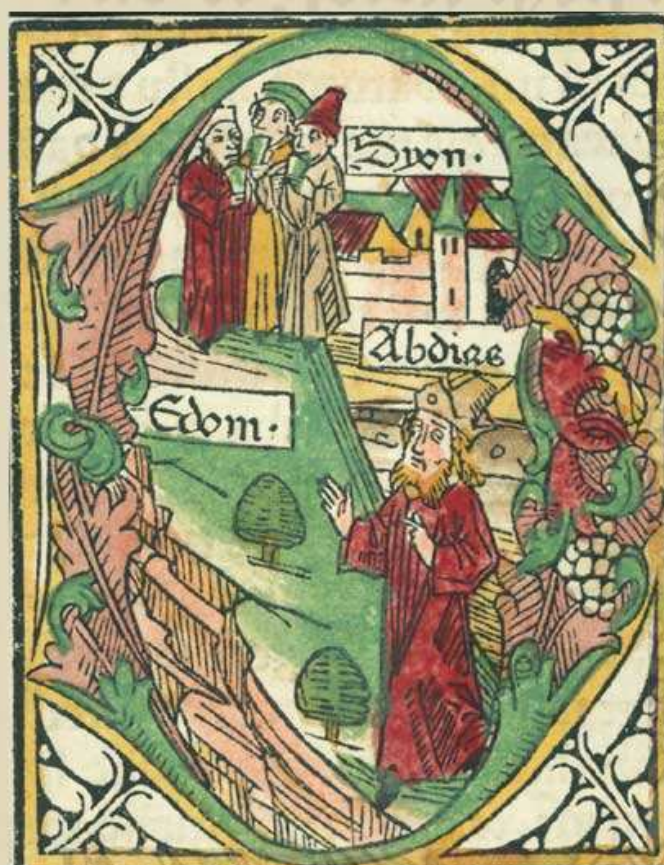 Syon·
Abdias
Edom·